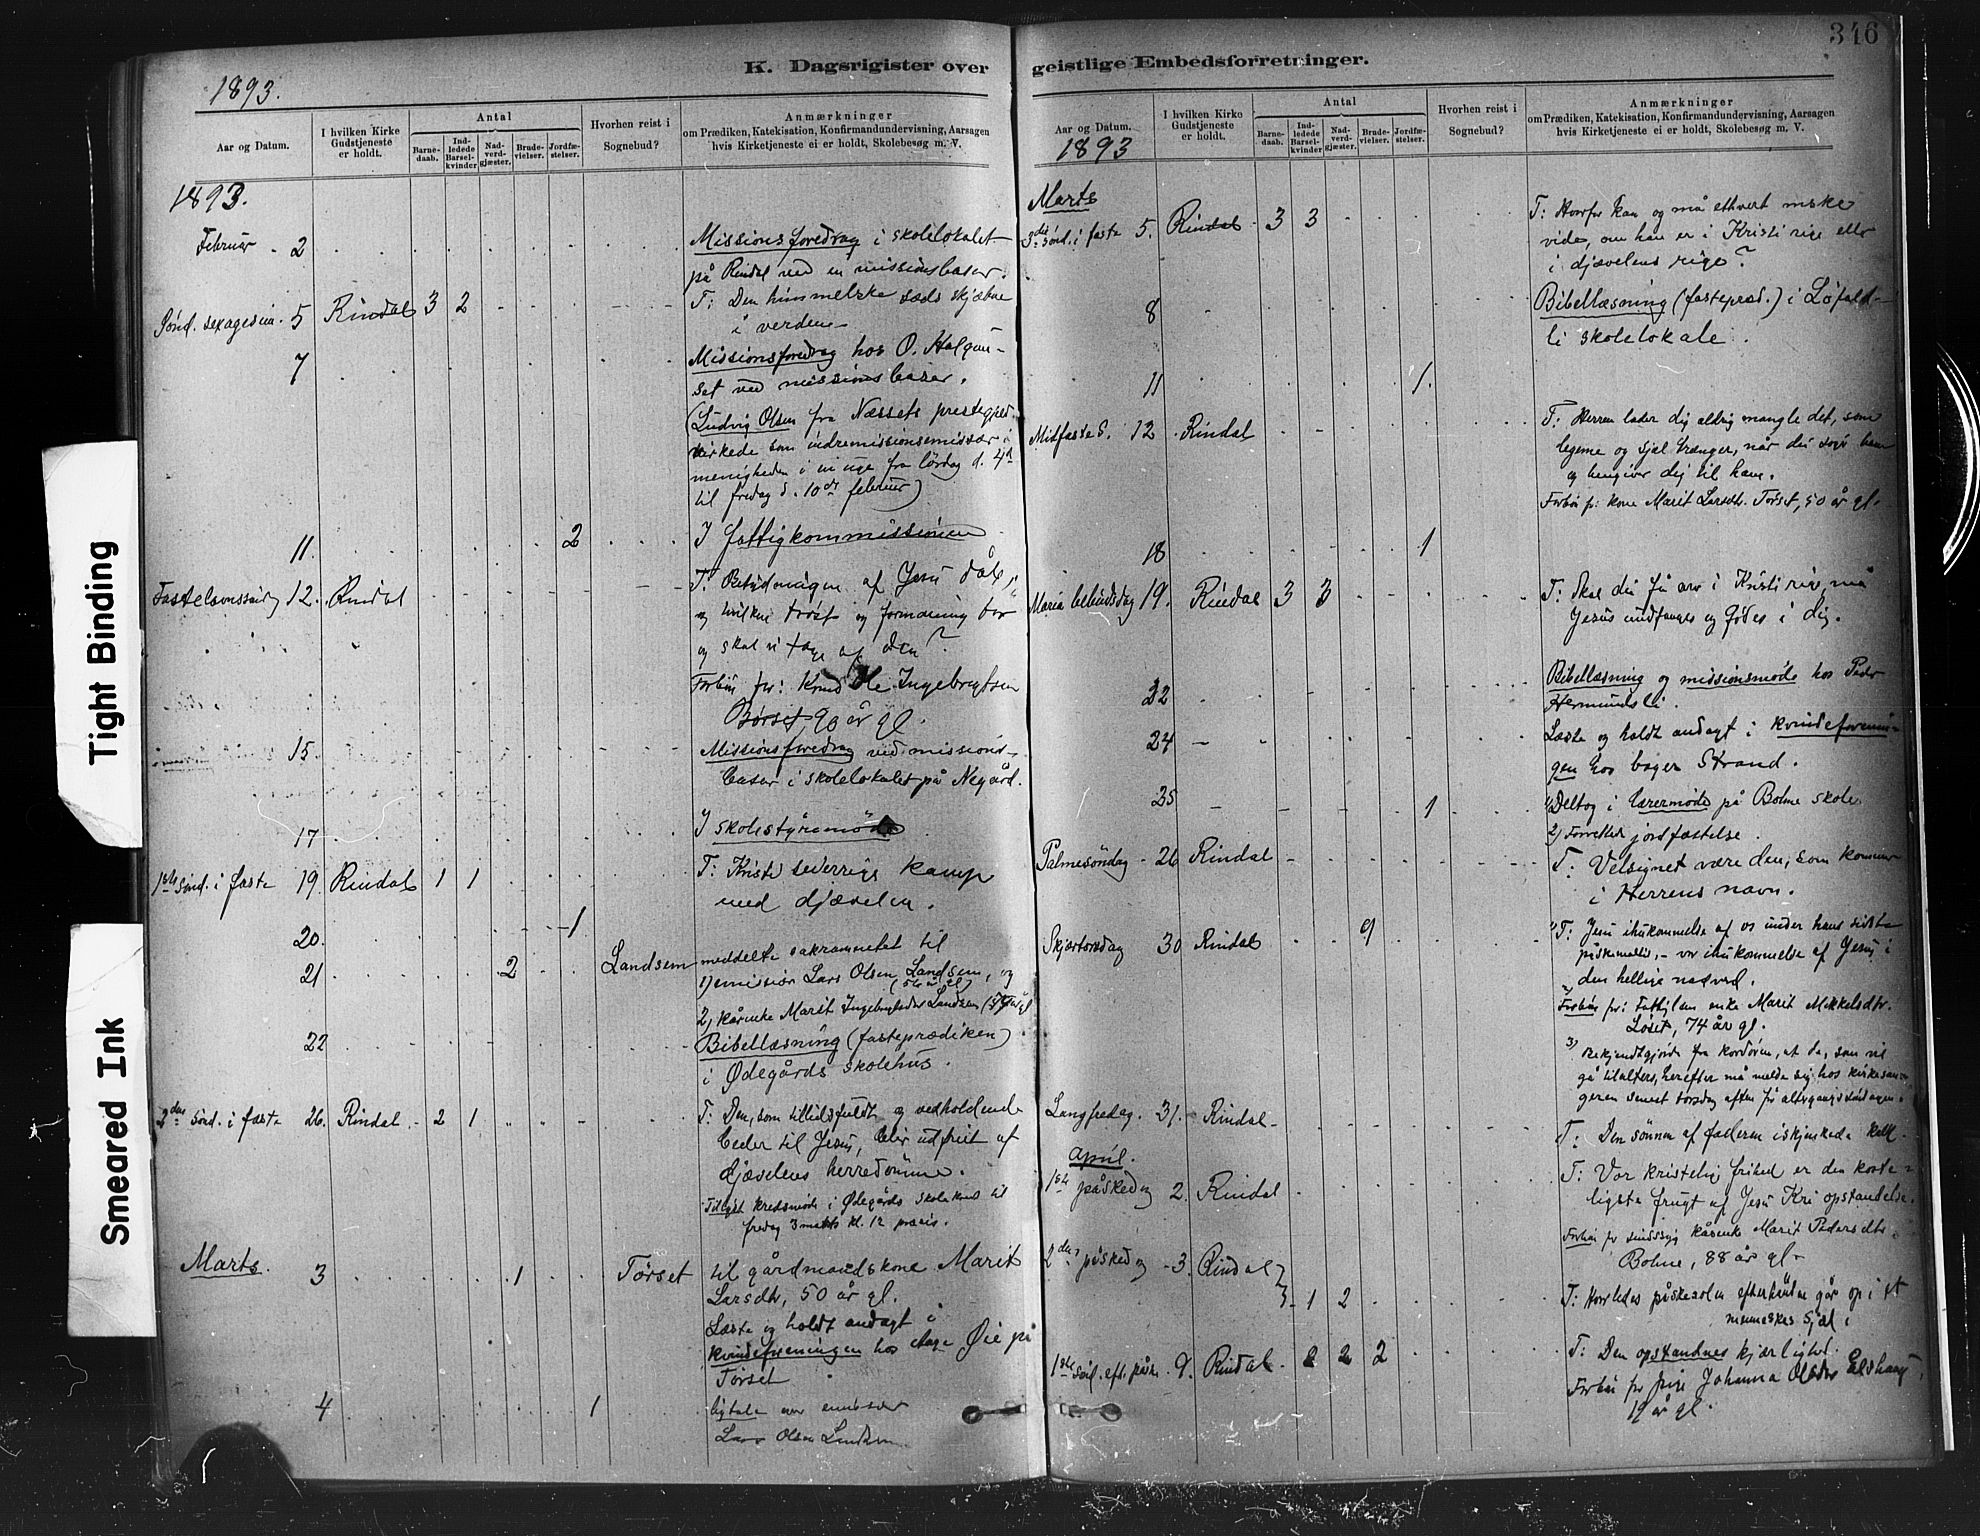 346
K. Dagsrigister over geistlige Embedsforretninger.
1893.
Aar og Datum.
I hvilken Kirke Gudstjeneste er holdt.
Antal
Barne-daab.
Ind-ledede Barsel-kvinder
Nad-verd-gjæster.
Brude-vielser.
Jordfæ-stelser.
Hvorhen reist i Sognebud?
Anmærkninger
om Prædiken, Katekisation, Konfirmandundervisning, Aarsagen
hvis Kirketjeneste ei er holdt, Skolebesøg m. V.
1893.
Februar - 2 Missionsforedrag i skolelokalet
på Rindal ved en missionsbasar.
Sønd. sexagesima. 5 Rindal 3 2 T: Den himmelske sæds skjæbne
i verden
7 Missionsforedrag hos O. Halgun-
set ved missionsbasar.
(Ludvig Olsen fra Næssets prestegjeld
virkede som indremissionsemissær i
menigheden i en uge fra lördag d. 4de
til fredag d. 10de februar)
11. 2 I fattigkommissionen
12. Rindal T: Betydningen af Jesu dåb,
og hvilken tröst og formaning bør
og skal vi tage af den?
Forbön for: Ole Ingebrigtsen
Børset 90 år gl.
15 Missionsforedrag ved missions-
basar i skolelokalet på Negård.
17 I skolestyremöde
1ste Sönd. i faste 19. Rindal 1 1 T: Kristi seierrige kamp
med djævelen.
20. 1
21 2 Landsem meddelte sakramentet til
1) emissær Lars Olsen Landsem, og
2) kårenke Marit Landsem
22 Bibellæsning (fasteprædiken)
i Ødegårds skolehus.
2den Sönd. i faste 26. Rindal. 2 1 T: Den, som tillidsfuldt og vedholdende
beder til Jesus, blir udfriet af
djævelens herredömme.
Tillyst kredsmöde i Ødegårds skolehus til
fredag 3 marts kl. 12 præcis.
Marts. 3 1 Tørset til gårdmandskone Marit
Larsdtr, 50 år gl.
Læste og holdt andagt i
kvindeforeningen hos Øie på
Tørset
4 1 ligtale over emissær
Lars Olsen Landsem
Aar og Datum.
1893
I hvilken Kirke Gudstjeneste er holdt.
Antal
Barne-daab.
Ind-ledede Barsel-kvinder
Nad-verd-gjæster.
Brude-vielser.
Jordfæ-stelser.
Hvorhen reist i Sognebud?
Anmærkninger
om Prædiken, Katekisation, Konfirmandundervisning, Aarsagen
hvis Kirketjeneste ei er holdt, Skolebesøg m. V.
Marts
3die sönd. i faste 5. Rindal 3 3 T: Hvorfor kan og må ethvert mske
vide, om han er i Kristi rige eller
i djævelens rige?
8 Bibellæsning (fastepræd.) i Löfald-
li skolelokale.
11 1.
Midfaste S. 12 Rindal T: Herren lader dig aldrig mangle det, som
legeme og sjæl trænger, når du søger ham
og hengiver dig til ham.
Forbön for kone Marit Larsdtr. Tørset, 50 år gl.
18 1
Maria bebudsdag 19. Rindal 3 3 T: Skal du få arv i Kristi rige, må
Jesus undfanges og födes i dig.
22 Bibellæsning og missionsmöde hos Peder
Hermundsli.
24 Læste og holdt andagt i kvindeforenin-
gen hos bager Strand.
25 1 1) Deltog i lærermöde på Bolme skole
2) Forrettede jordfæstelse.
Palmesöndag - 26 Rindal T: Velsignet være den, som kommer
i Herrens navn.
Skjærtorsdag 30 Rindal 9 1) T: Jesu ihukommelse af os under hans sidste
påskemåltid, - vor ihukommelse af Jesus i
den hellige nadverd.
2) Forbön for: Fattiglem enke Marit Mikkelsdtr.
Löset, 74 år gl.
3) Bekjendtgjorde fra kordören, at de, som vil
gå til alters, herefter må melde sig hos kirkesan-
geren senest torsdag aften för altergangssöndagen.
Langfredag. 31. Rindal - T: Den sönnen af faderen iskjenkede kalk.
April.
1ste påskedag 2. Rindal T: Vor kristelig frihed er den koste-
ligste frugt af Jesu Kri opstandelse.
Forbön for sindssyg kårenke Marit Pedersdtr
Bolme, 88 år gl.
2den påskedag - 3. Rindal 3 1 2 T: Hvorledes påskesolen efterhånden går op i et
menneskes sjæl
1ste Sönd. eft. påske. 9. Rindal. 2 2 2 T: Den opstandnes kjærlighed.
Forbön for pige Johanna Olsdtr
12 år gl.
Tight Binding
Smeared Ink